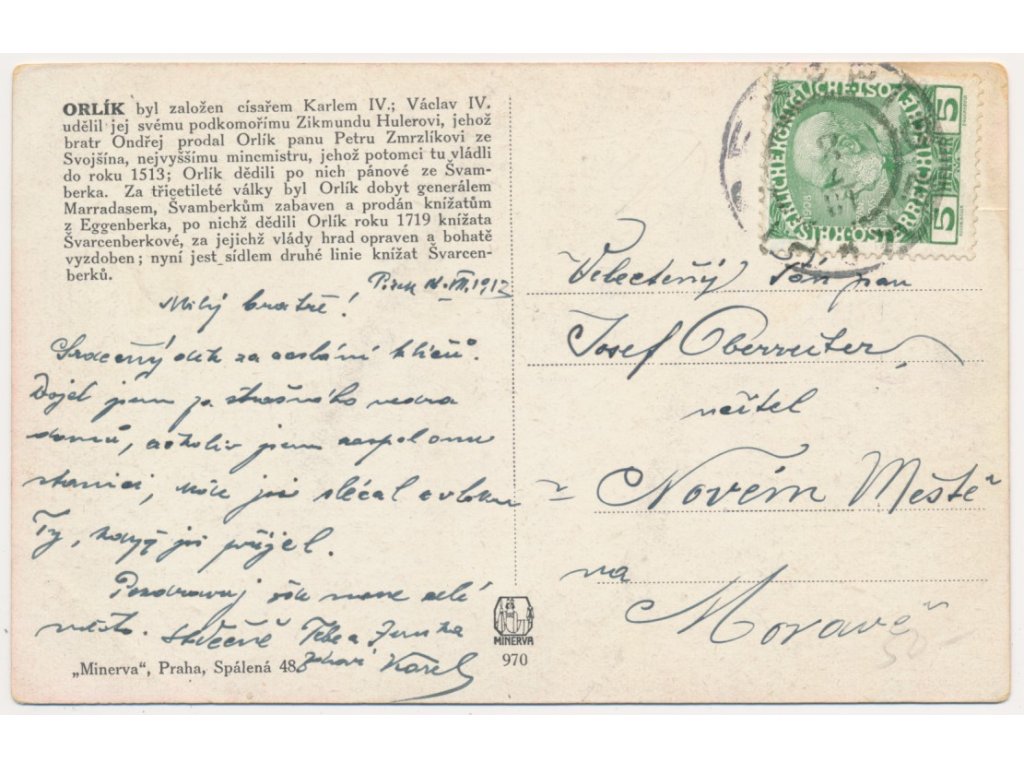 ORLÍK byl založen císařem Karlem IV.; Václav IV.
udělil jej svému podkomořímu Zikmundu Hulerovi, jehož
bratr Ondřej prodal Orlík panu Petru Zmrzlíkovi ze
Svojšína, nejvyššímu mincmistru, jehož potomci tu vládli
do roku 1513; Orlík dědili po nich pánové ze Švam-
berka. Za třicetileté války byl Orlík dobyt generálem
Marradasem, Švamberkům zabaven a prodán knížatům
z Eggenberka, po nichž dědili Orlík roku 1719 knížata
Švarcenberkové, za jejichž vlády hrad opraven a bohatě
vyzdoben; nyní jest sídlem druhé linie knížat Švarcen-
berků.
VII. 1912
Milý bratře!
Srdečný dík za zaslání klíčů.
Dojel jsem za strašného vedra
domů, ačkoliv jsem zaspal onu
stanici, kde jsi slézal z vlaku
Ty, když jsi přijel.
Pozdravuj
město. Srdečně Tebe a
Karel
„Minerva“, Praha, Spálená 48.
MINERVA
970
5 HELLER 5
1908
Velectěný Pán pan
Josef Oberreiter
učitel
v Novém Městě
na
Moravě